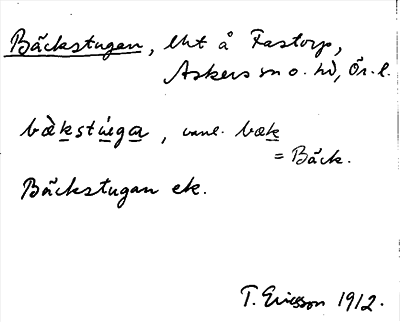 Bäckstugan, lht å Fastorp,
Askers sn o. hd, Ör. l.
bæ̀kstúga, vanl. bæk
= Bäck.
Bäckstugan ek.
T. Ericsson 1912.